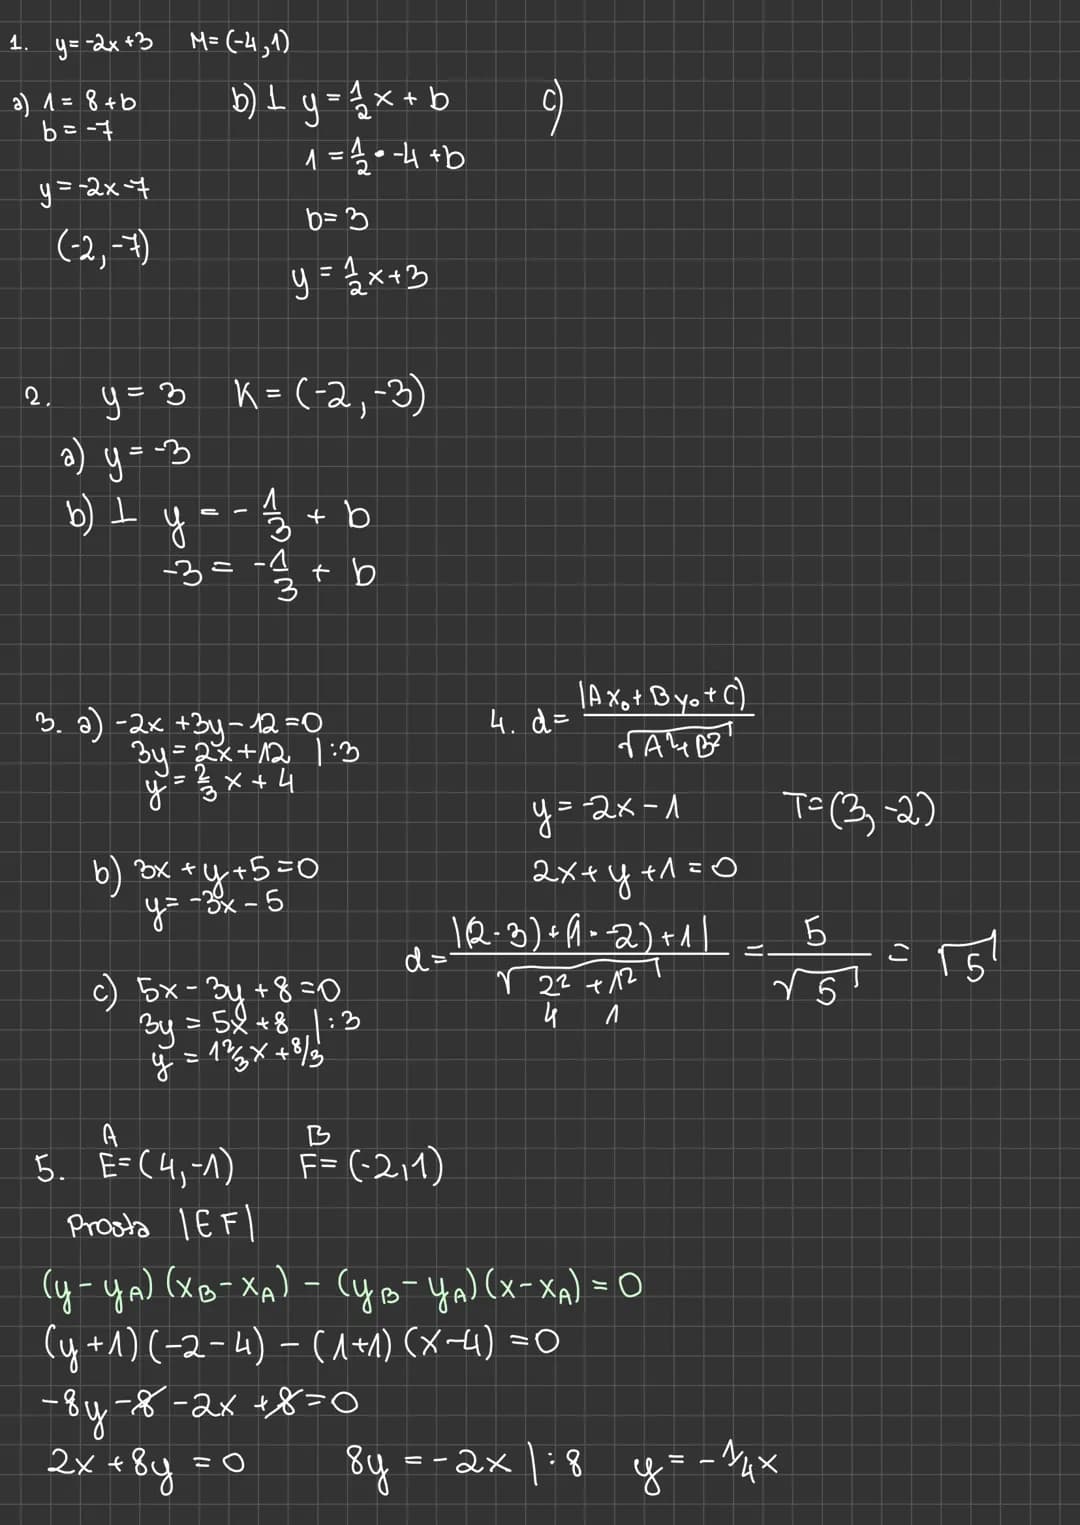 1. y=-2x+3 M=(-4,1)
a) 1 = 8+b
b = -7
y=-2x-7
(-2,-7)
b) ⊥ y = 1/2 x + b
1 = 1/2 • -4 +b
b= 3
y = 1/2 x+3
c)
2. y= 3 K = (-2,-3)
a) y = -3
b) ⊥ y = - 1/3 + b
-3 = -1/3 + b
3. a) -2x +3y-12=0
3y = 2x+12 |:3
y = 2/3 x + 4
b) 3x +y+5=0
y= -3x-5
c) 5x-3y+8=0
3y = 5x+8 |:3
y = 1 2/3 x + 8/3
4. d= |Ax₀+By₀+C)/√A²+B²
y=-2x-1 T=(3,-2)
2x+y+1=0
d= |(2·3)+(1·-2)+1|/√2²+1² = 5/√5 = √5
4 1
A B
5. E=(4,-1) F=(-2,1)
Prosta |EF|
(y-yA)(xB-xA) - (yB-yA)(x-xA) = 0
(y+1)(-2-4) - (1+1)(x-4) = 0
-8y-8-2x+8=0
2x+8y = 0 8y = -2x |:8 y = -1/4x